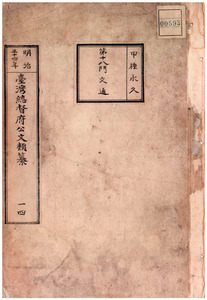 00593
甲種永久
第十八門交通
明治
三十四年
臺灣總督府公文類纂
一四